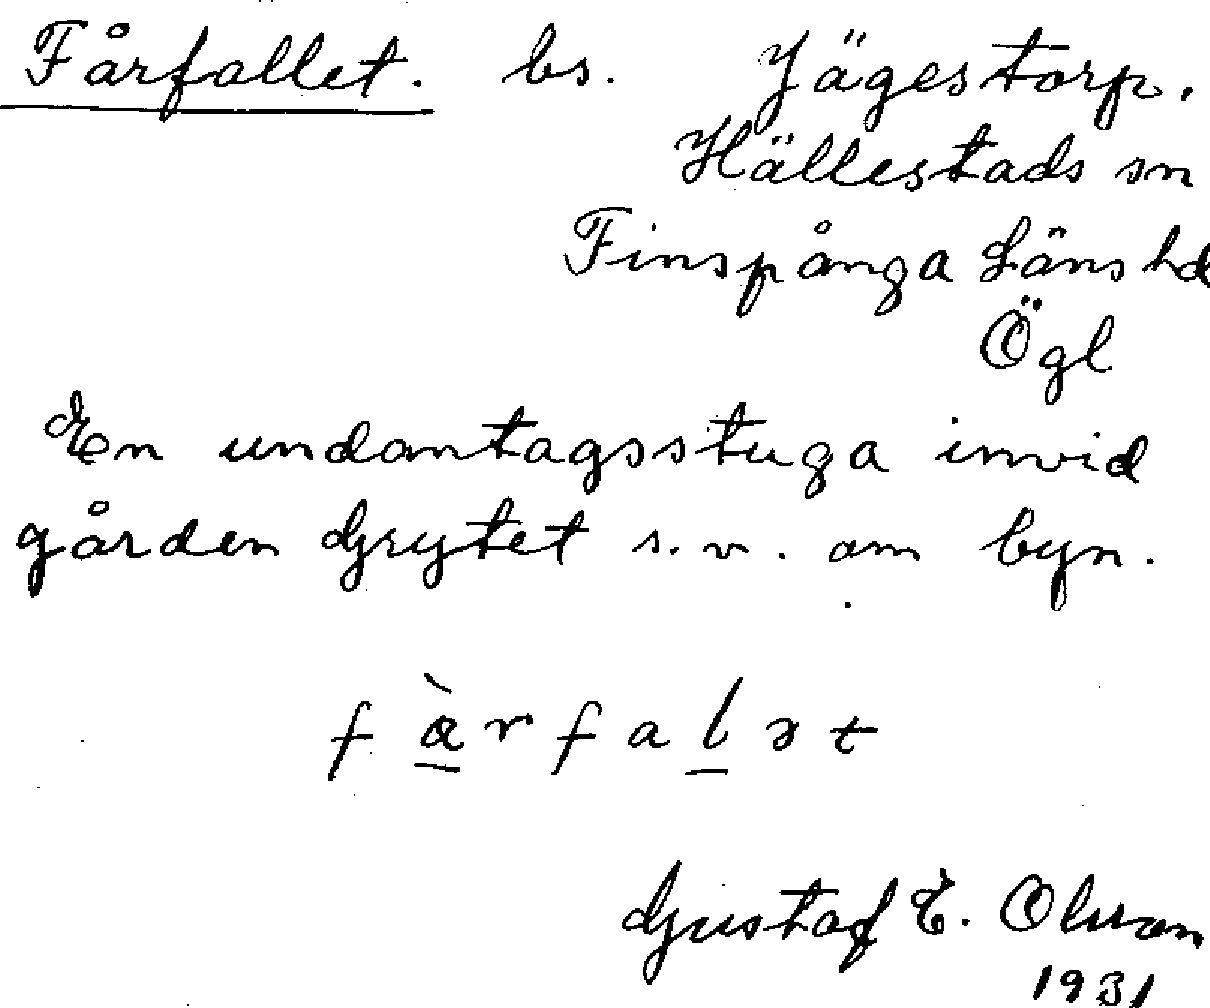 Fårfallet. bs. Jägestorp.
Hällestads sn
Finspånga Läns hd
Ögl
En undantagsstuga invid
gården Grytet s.v. om byn.
Gustaf E. Olsson
1931